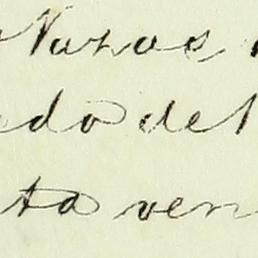 Navas
do del
ta ven